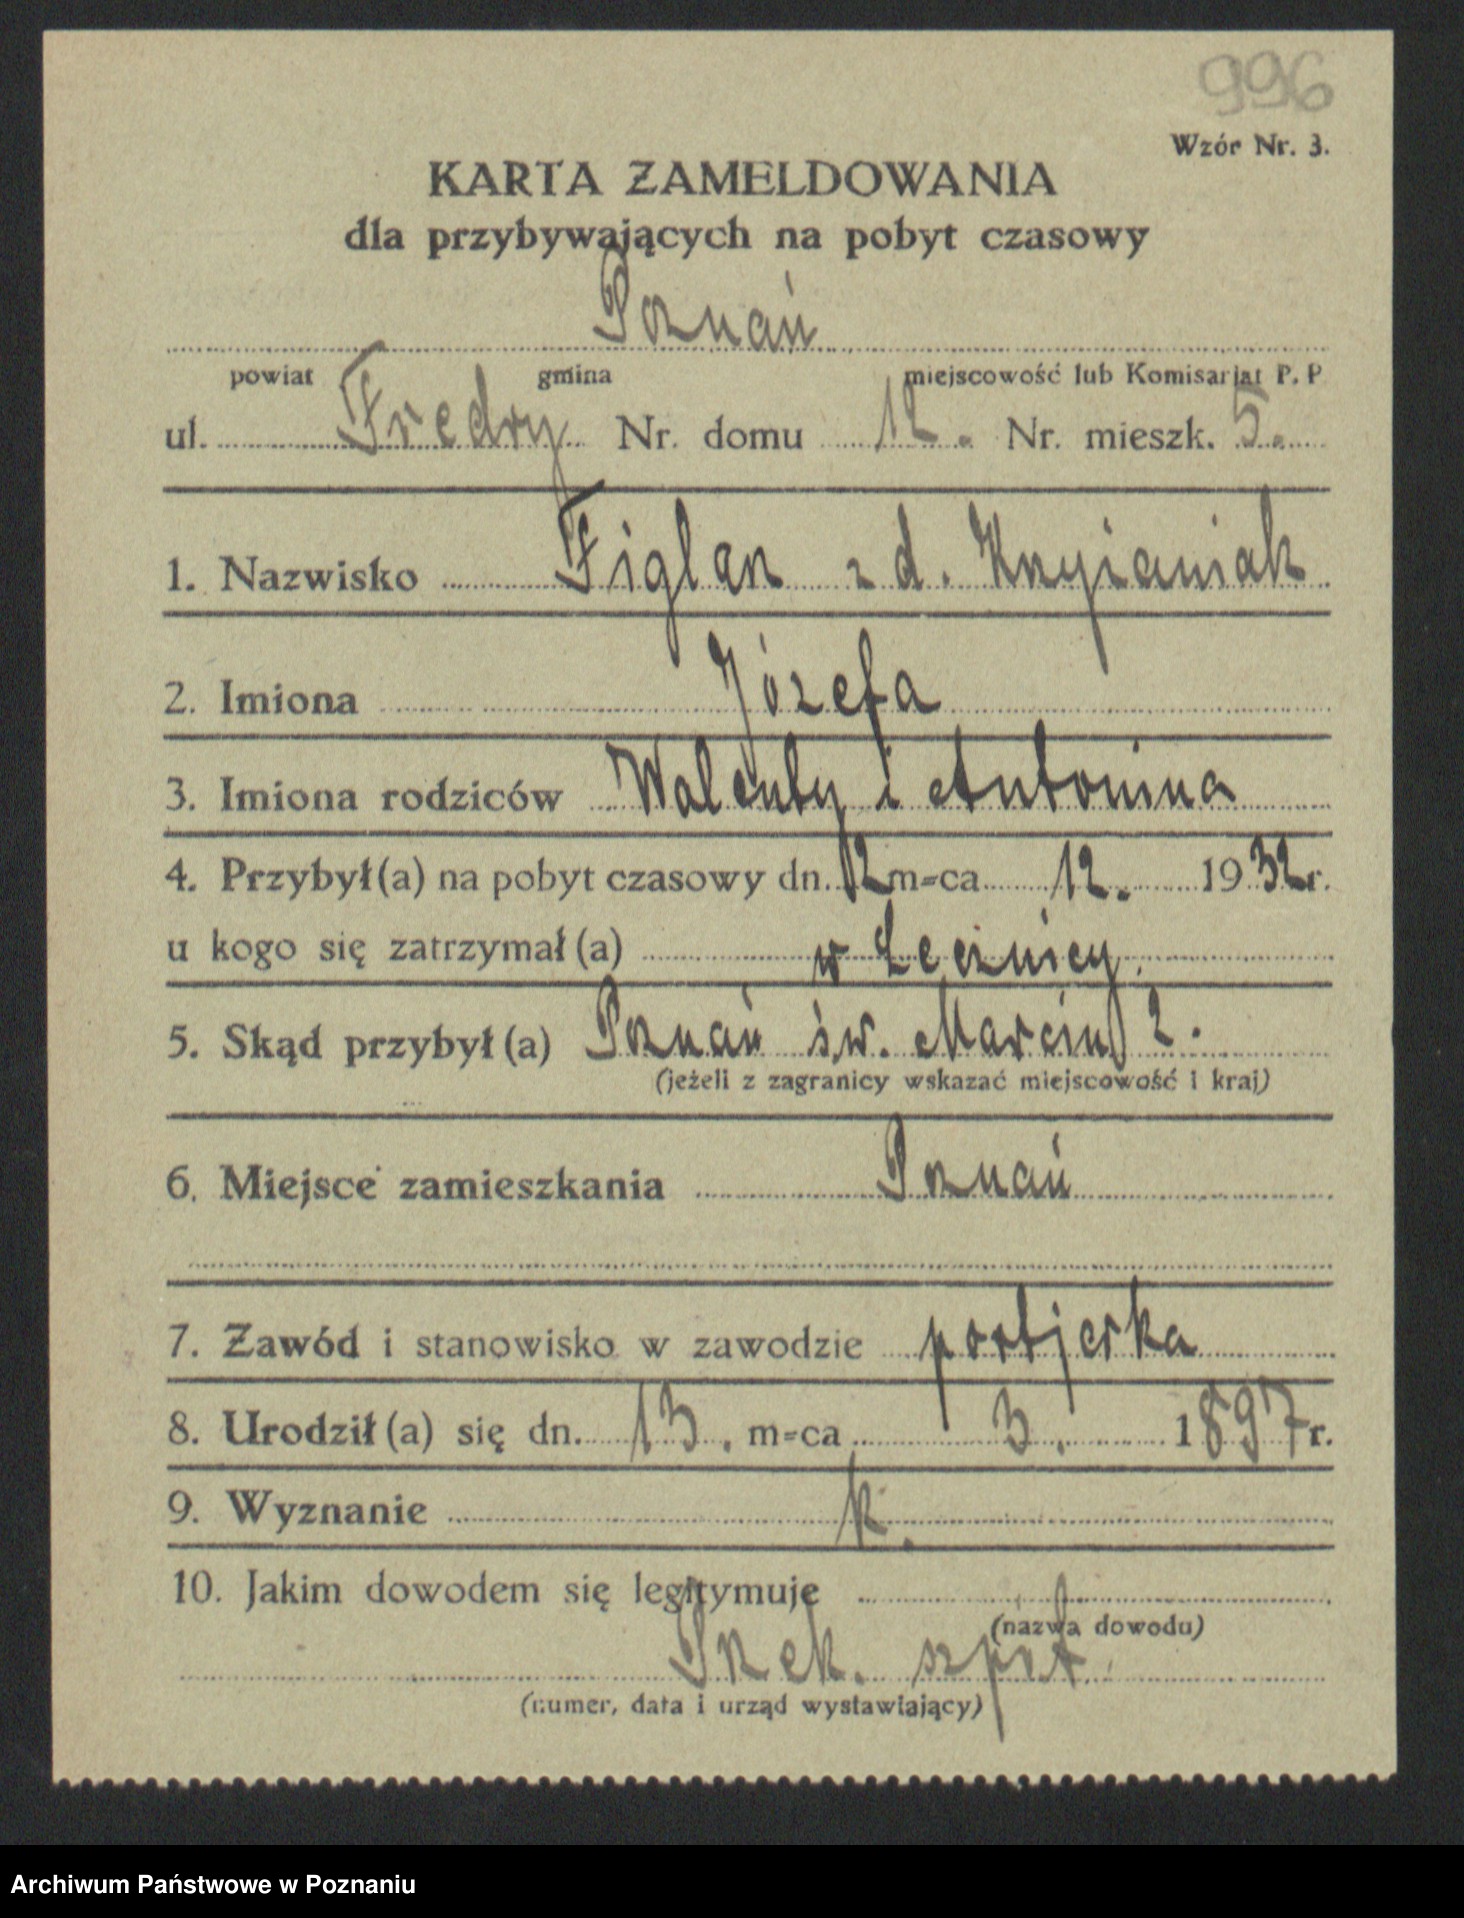 996
Wzór Nr. 3.
KARTA ZAMELDOWANIA
dla przybywających na pobyt czasowy
Poznań
powiat gmina miejscowość lub Komisarjat P. P
ul. Fredry Nr. domu 12. Nr. mieszk. 5.
1. Nazwisko Figlarz z d. Krzyżaniak
2. Imiona Józefa
3. Imiona rodziców Walenty i Antonina
4. Przybył(a) na pobyt czasowy dn. 12 m-ca 12. 1932 r.
u kogo się zatrzymał(a) w Lecznicy.
5. Skąd przybył(a) Poznań św. Marcin 2.
(jeżeli z zagranicy wskazać miejscowość i kraj)
6. Miejsce zamieszkania Poznań
7. Zawód i stanowisko w zawodzie portjerka
8. Urodził(a) się dn. 13. m-ca 3. 1897 r.
9. Wyznanie k.
10. Jakim dowodem się legitymuje
(nazwa dowodu)
szpit.
(numer, data i urząd wystawiający)
Archiwum Państwowe w Poznaniu